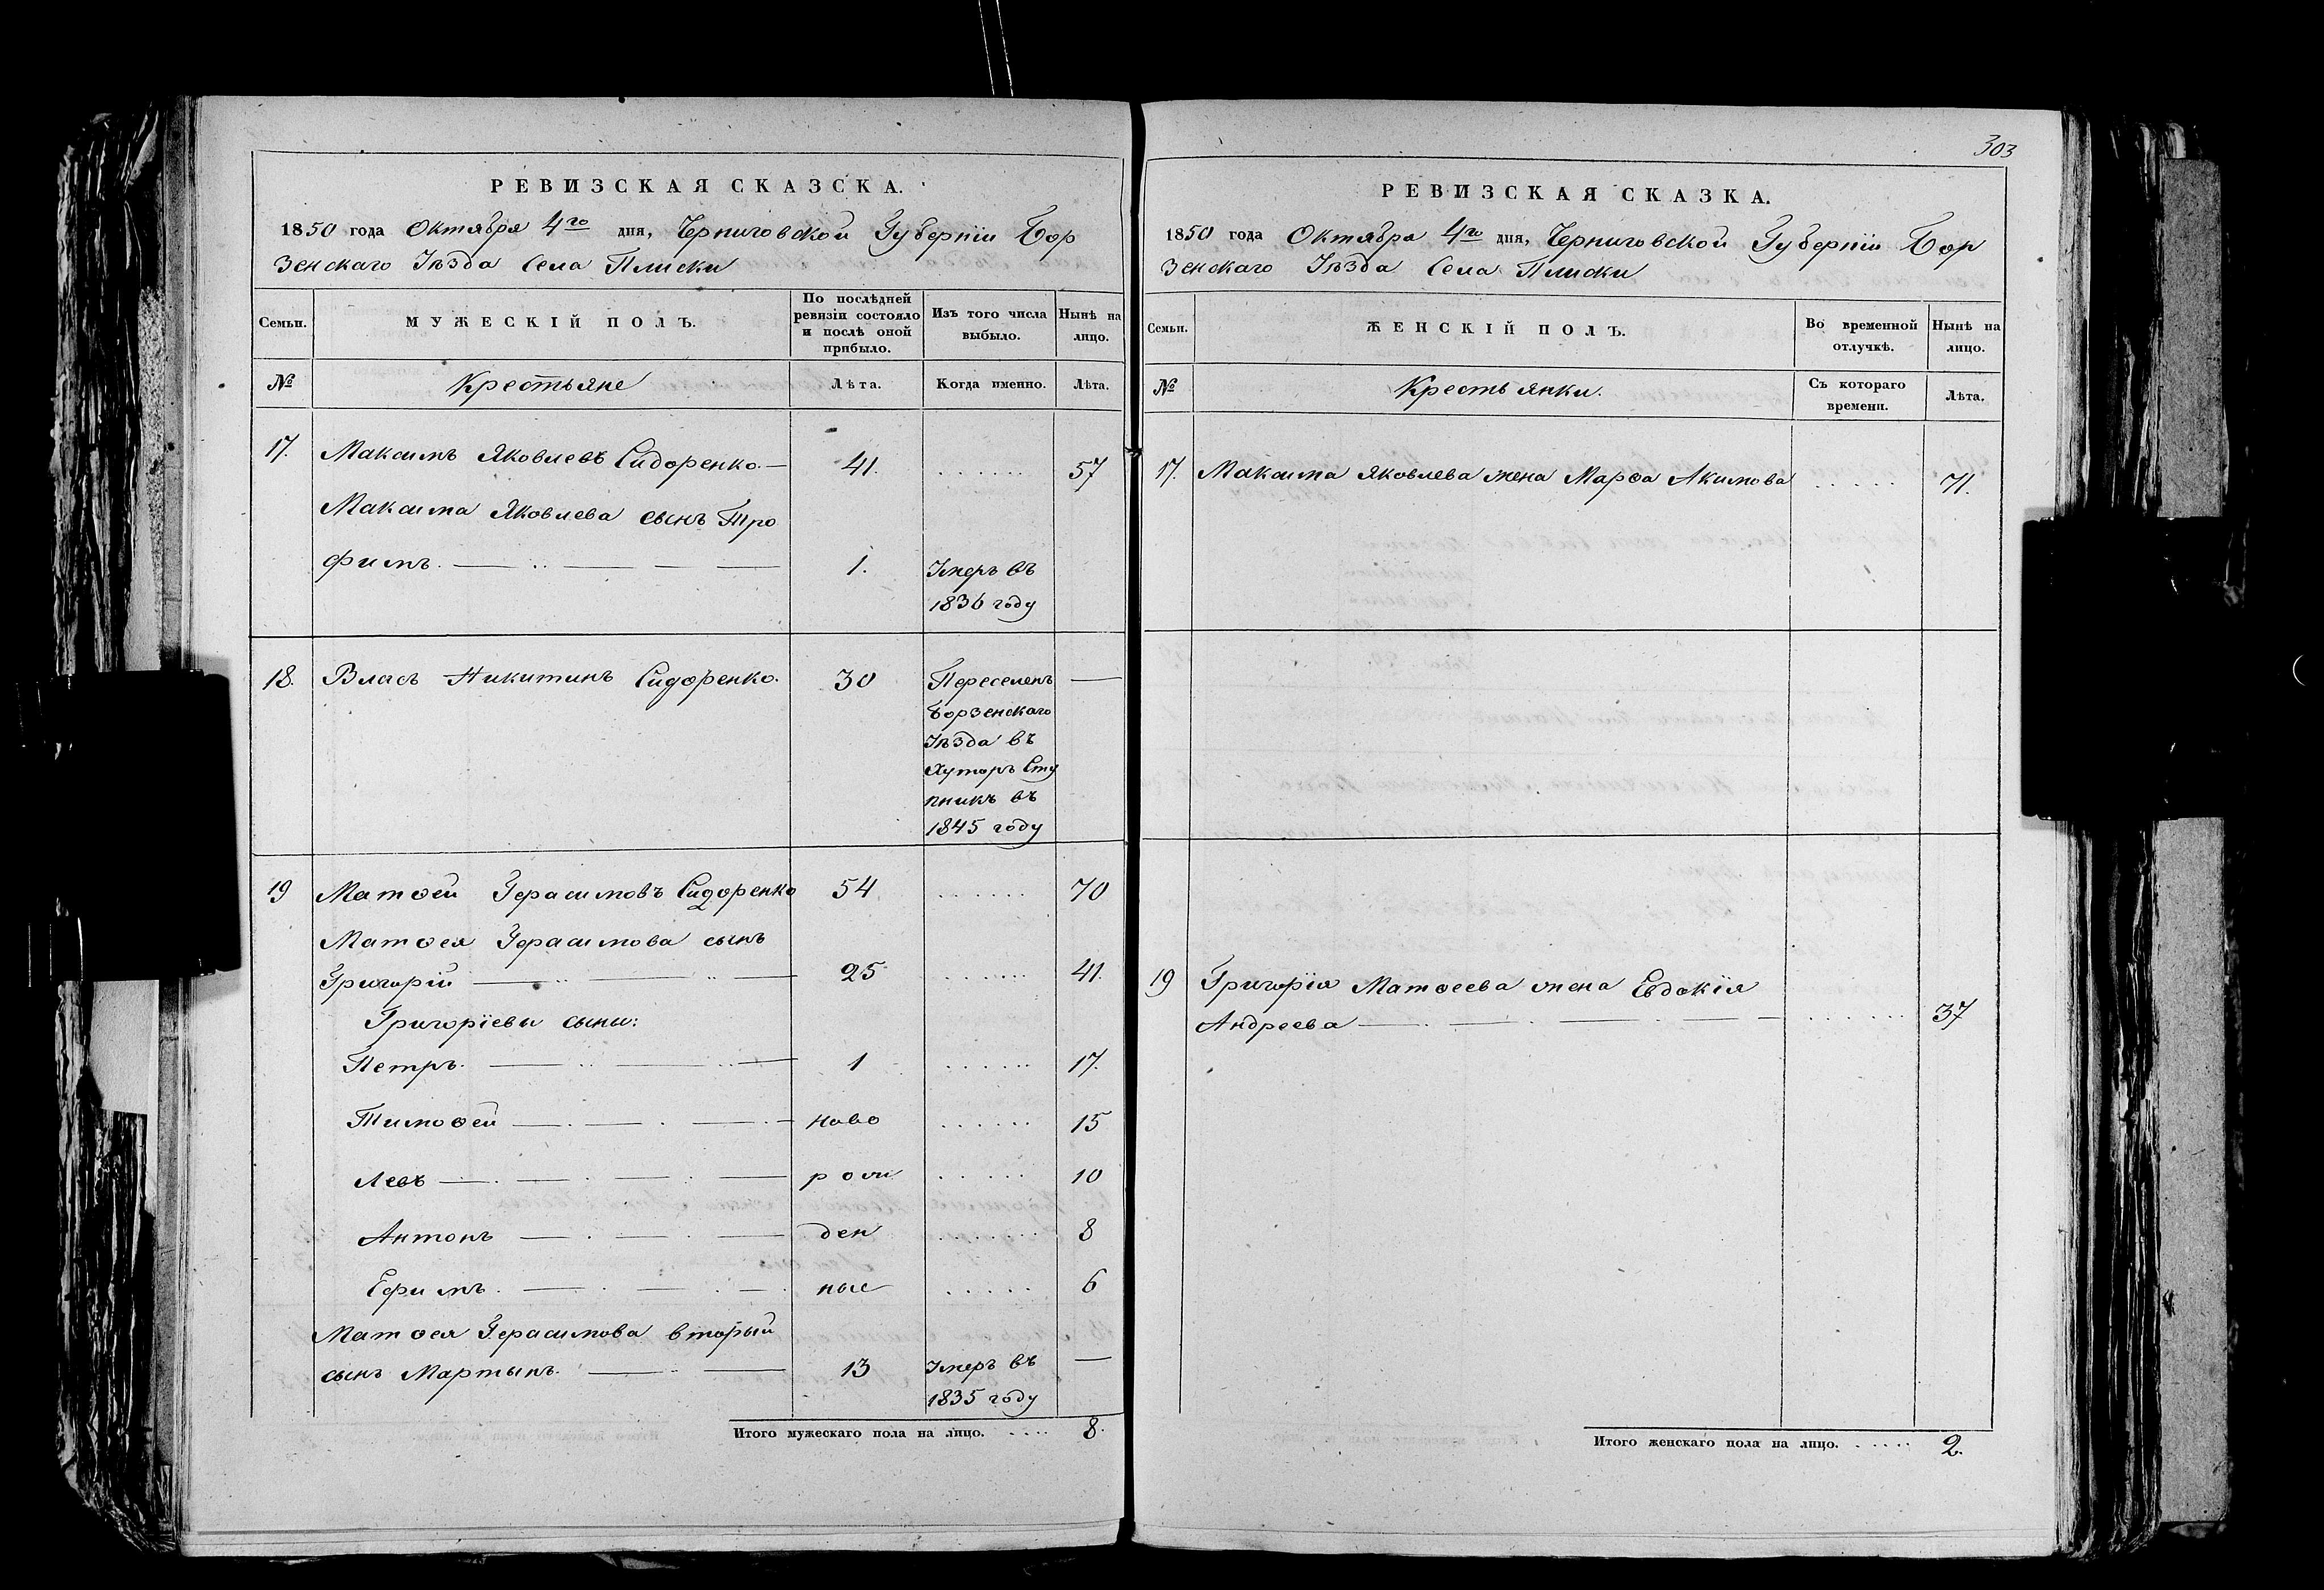 РЕВИЗСКАЯ СКАЗСКА.
1850 года Октября 4го дня, Черниговской Губерніи Бор
зенскаго Уѣзда Села Плиски
Семьи.
МУЖЕСКІЙ ПОЛЪ.
По послѣдней
ревизіи состояло
и послѣ оной
прибыло.
Изъ того числа
выбыло.
Нынѣ на
лицо.
№ Крестьяне Лѣта. Когда именно. Лѣта.
17. Максимъ Яковлевъ Сидоренко.— 41. ...... 57
Максима Яковлева сынъ Тро
фимъ. 1. Умеръ въ
1836 году
18. Власъ Никитинъ Сидоренко. 30 Переселенъ —
Борзенскаго
Уѣзда въ
Хуторъ Сту
пникъ въ
1845 году
19 Матѳей Герасимовъ Сидоренко 54 ...... 70
Матѳея Герасимова сынъ
Григорій 25 ...... 41.
Григоріевы сыны:
Петръ. 1 ...... 17.
Тимоѳей ново ...... 15
Левъ рож ...... 10
Антонъ ден ...... 8
Ефимъ. ные ...... 6
Матѳея Герасимова вторый
сынъ Мартынъ. 13 Умеръ въ —
1835 году
Итого мужескаго пола на лицо. .... 8.
303
РЕВИЗСКАЯ СКАЗКА.
1850 года Октября 4го дня, Черниговской Губерніи Бор
зенскаго Уѣзда Села Плиски
Семьи.
ЖЕНСКІЙ ПОЛЪ.
Во временной
отлучкѣ.
Нынѣ на
лицо.
№ Крестьянки. Съ котораго
времени.
Лѣта.
17. Максима Яковлева жена Марѳа Акимова ..... 71.
19 Григорія Матѳеева жена Евдокія
Андреева ...... 37
Итого женскаго пола на лицо. ..... 2.